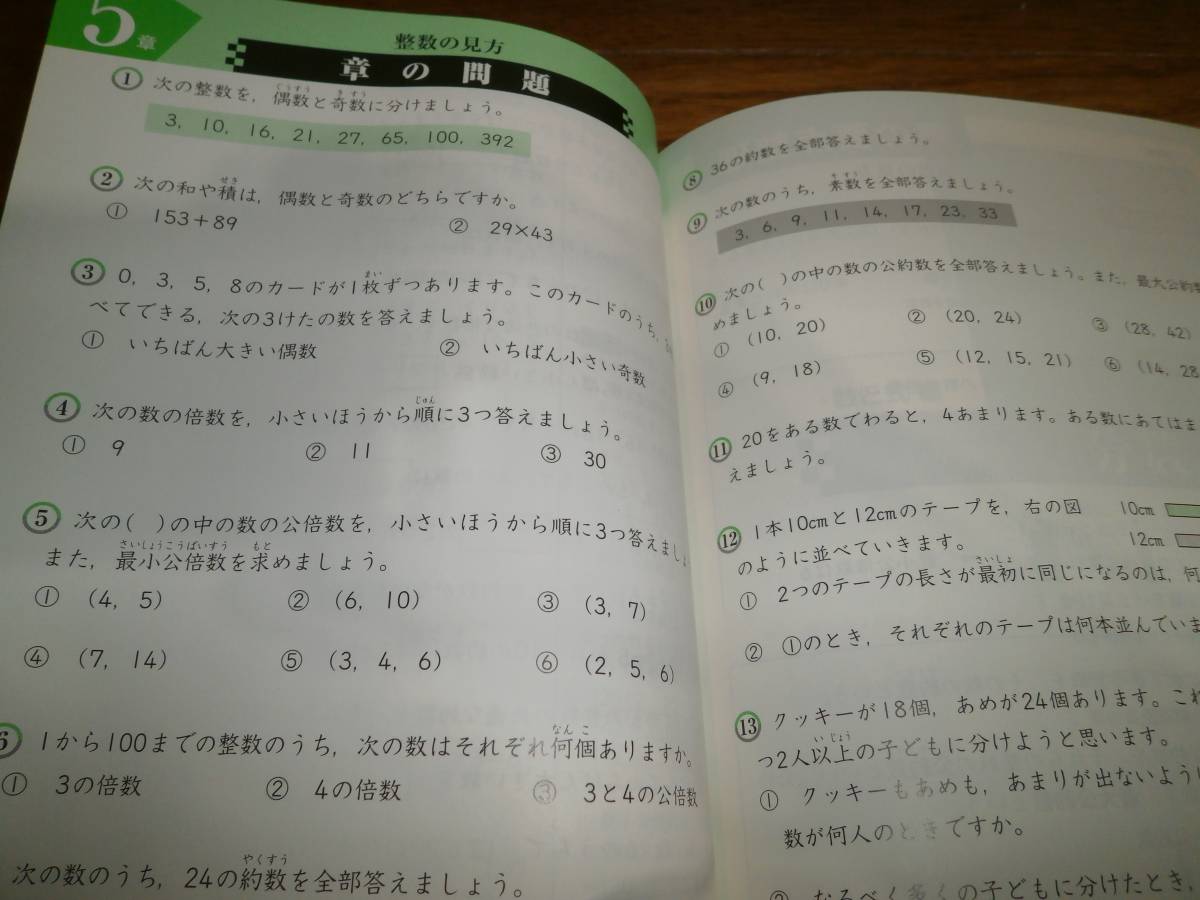 5章
整数の見方
章の問題
① 次の整数を，偶数と奇数に分けましょう。
3，10，16，21，27，65，100，392
② 次の和や積は，偶数と奇数のどちらですか。
① 153＋89 ② 29×43
③ 0，3，5，8のカードが1枚ずつあります。このカードのうち，
べてできる，次の3けたの数を答えましょう。
① いちばん大きい偶数 ② いちばん小さい奇数
④ 次の数の倍数を，小さいほうから順に3つ答えましょう。
① 9 ② 11 ③ 30
⑤ 次の( )の中の数の公倍数を，小さいほうから順に3つ答えまし
また，最小公倍数を求めましょう。
① (4，5) ② (6，10) ③ (3，7)
④ (7，14) ⑤ (3，4，6) ⑥ (2，5，6)
6 1から100までの整数のうち，次の数はそれぞれ何個ありますか。
① 3の倍数 ② 4の倍数 ③ 3と4の公倍数
次の数のうち，24の約数を全部答えましょう。
⑧ 36の約数を全部答えましょう。
⑨ 次の数のうち，素数を全部答えましょう。
3，6，9，11，14，17，23，33
⑩ 次の( )の中の数の公約数を全部答えましょう。また，最大公約数
めましょう。
① (10，20) ② (20，24) ③ (28，42)
④ (9，18) ⑤ (12，15，21) ⑥ (14，28
⑪ 20をある数でわると，4あまります。ある数にあてはま
えましょう。
⑫ 1本10cmと12cmのテープを，右の図
のように並べていきます。
10cm
12cm
① 2つのテープの長さが最初に同じになるのは，何
② ①のとき，それぞれのテープは何本並んでいま
⑬ クッキーが18個，あめが24個あります。これ
つ2人以上の子どもに分けようと思います。
① クッキーもあめも，あまりが出ないように
数が何人のときですか。
② なるべく多くの子どもに分けたとき，